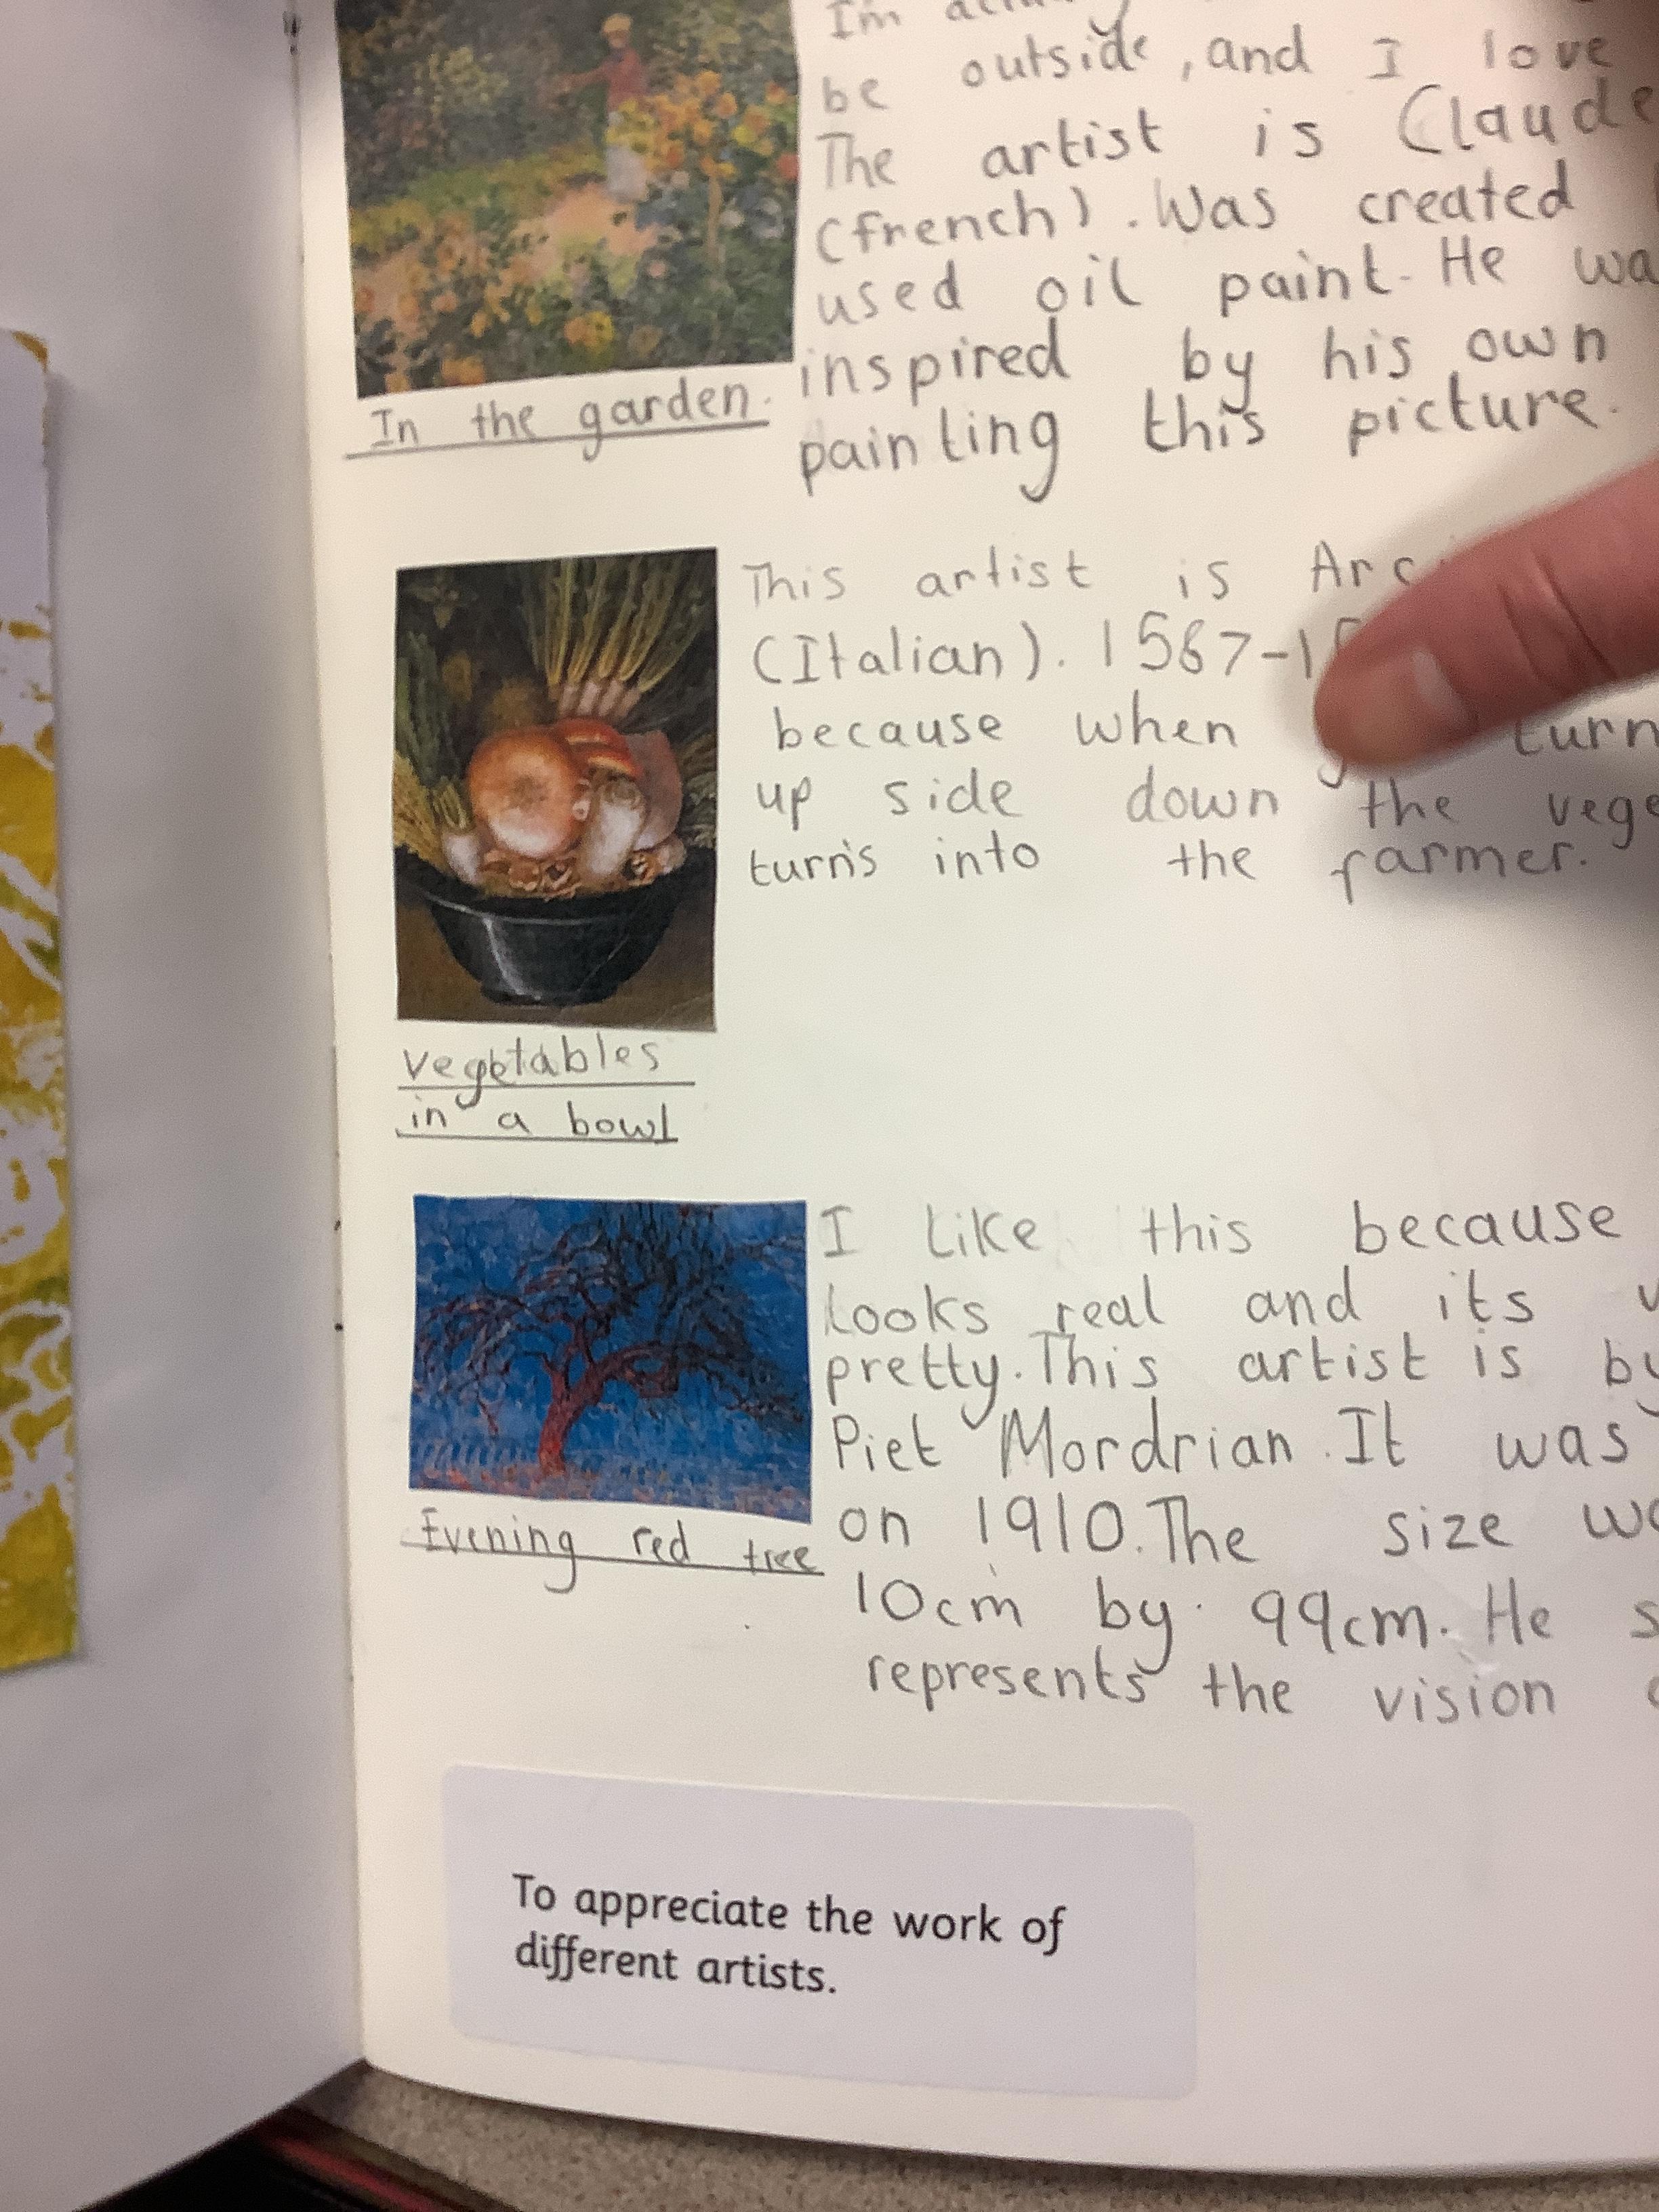 I'm
be outside, and I love
The artist is Claude
(french). Was created
used oil paint. He
inspired by his own
painting this picture.
In the garden.
This artist is
(Italian). 1587-
because when
up side down the
turns into the farmer.
vegetables
in a bowl
I like this because
looks real and its
pretty. This artist is by
Piet Mordrian. It was
on 1910. The size
10cm by 99cm. He
represents the vision
Evening red tree
To appreciate the work of
different artists.